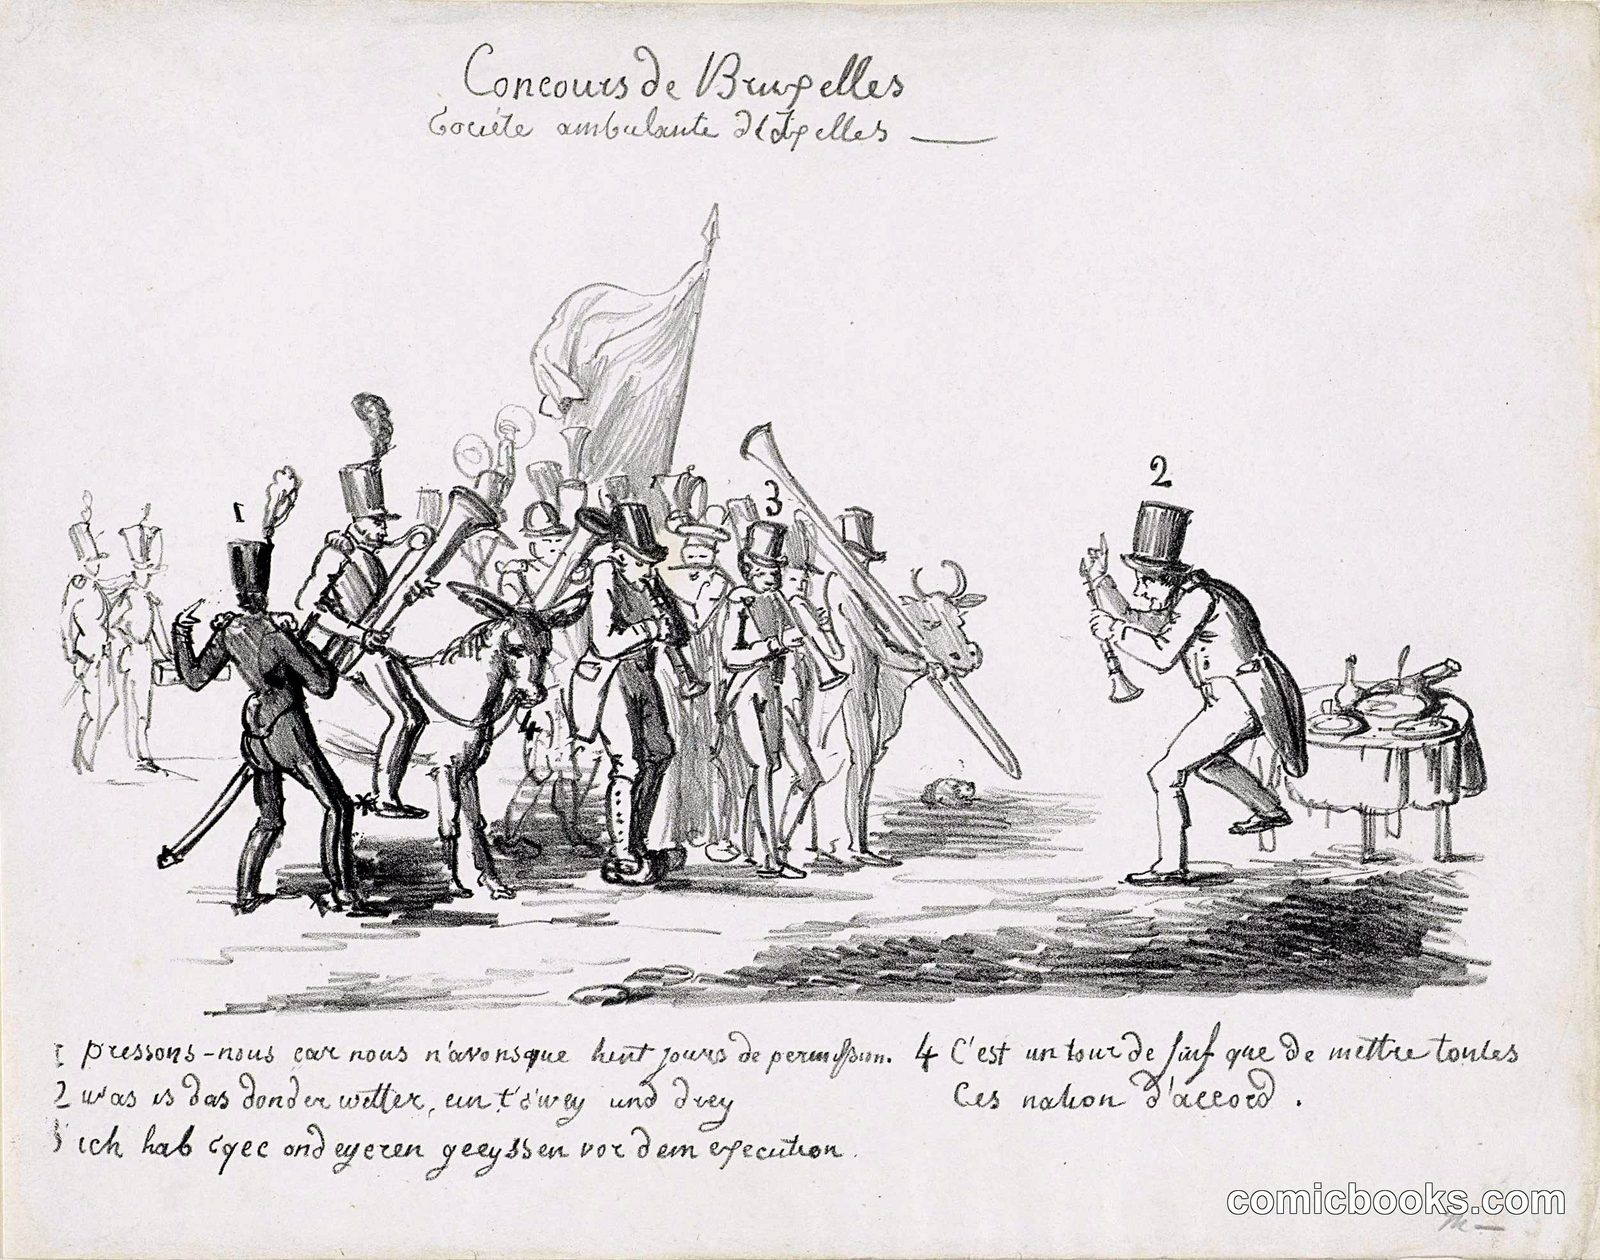 Concours de Bruxelles
Société ambulante d'Ixelles
1
2
3
4
1 pressons-nous car nous n'avons que huit jours de permission.
2 was is das donder wetter, ein t'swey und drey
3 ich hab eyeren geeyssen vor dem execution.
4 C'est un tour de que de mettre toutes
Ces nation d'accord.
comicbooks.com